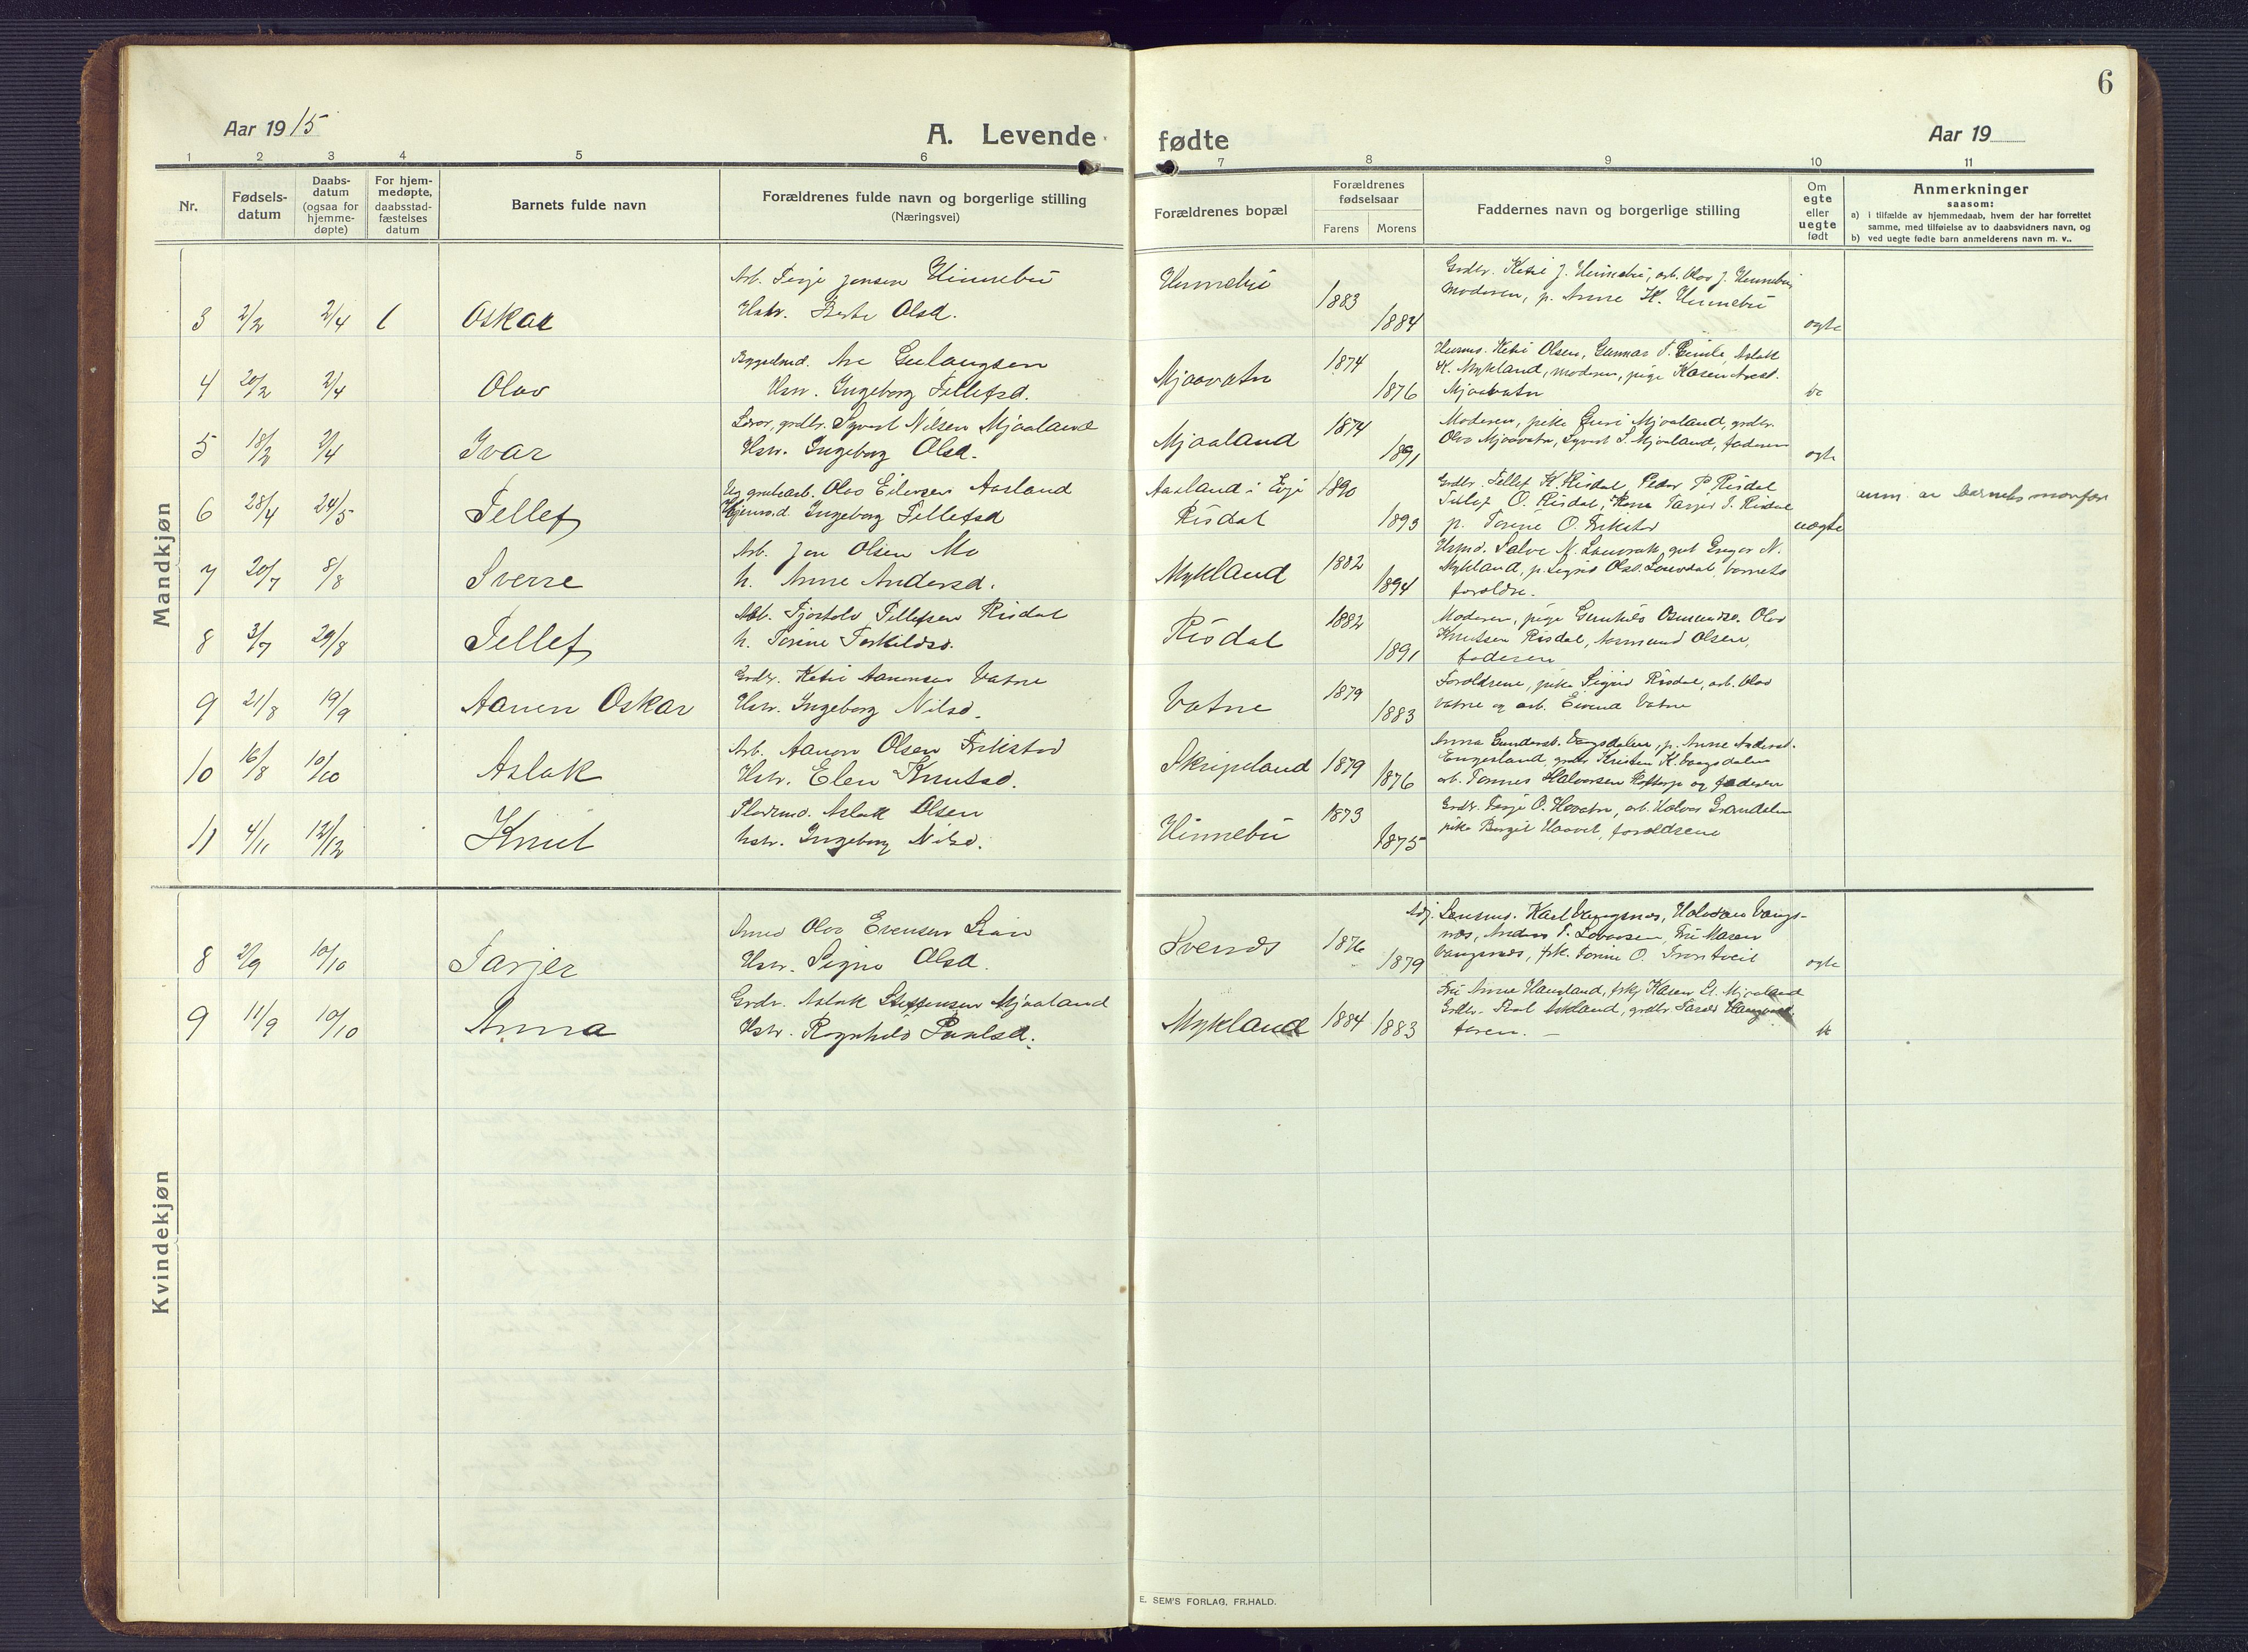 6
Aar 1915
A. Levende fødte
Aar 19
1 2 3 4 5 6 7 8 9 10 11
Nr.
Fødsels-
datum
Daabs-
datum
(ogsaa for
hjemme-
døpte)
For hjem-
medøpte,
daabsstad-
fæstelses
datum
Barnets fulde navn
Forældrenes fulde navn og borgerlige stilling
(Næringsvei)
Forældrenes bopæl
Forældrenes
fødselsaar
Farens Morens
Faddernes navn og borgerlige stilling
Om
egte
eller
uegte
født
Anmerkninger
saasom:
a) i tilfælde av hjemmedaab, hvem der har forrettet
samme, med tilføielse av to daabsvidners navn, og
b) ved uegte fødte barn anmelderens navn m. v..
Mandkjøn
Arb. Terje Jensen Hinnebu
3 2/2 2/4 Oskar
Hstr. Berte Olsd.
Hinnebu 1883 1884
Grdbr. Ketil J. Hinnebu, arb. Olav J. Hinnebu,
Moderen, p. Anne K. Hinnebu
egte
Are Gulaugsen
4 20/2 2/4 Olav
Hstr. Ingeborg Tellefsd.
Mjaavatn 1874 1876
Ketil Olsen, Gunnar T. Gimle, Aslak
K. Mykland, moderen, pige Karen
Mjaavatn
Syvert Nilsen Mjaaland
5 18/2 2/4 Ivar
Hstr. Ingeborg Olsd.
Mjaaland 1874 1891
Moderen, pike Guri Mjaaland, grdbr.
Olav Mjaavatn, Syvert S. Mjaaland, faderen
egte
Ug. grubearb. Olav Eilevsen Aasland
6 28/4 24/5 Tellef
Ingeborg Tellefsd
Aasland i Evje 1890
Risdal 1893
Grdbr. Tellef K. Risdal, Peder P. Risdal
Tellef O. Risdal, Kona Tarjei T. Risdal
p. Torine O. Frikstad
uegte
anm. av barnets morfar
Arb. Jon Olsen Mo
7 20/7 8/8 Sverre
h. Anne Andersd.
Mykland 1882 1894
Salve N. gut N.
Mykland, p. Sigrid Olsd. barnets
foreldre.
Arb. Tjøstolv Tellefsen Risdal
8 3/7 29/8 Tellef
h. Torine Torkildsd.
Risdal 1882 1891
Moderen, pige Gunhild Osmundsd. Olav
Knutsen Risdal, Aasmund Olsen,
faderen
Grdbr. Ketil Aanensen Vatne
9 21/8 19/9 Aanen Oskar
Hstr. Ingeborg Nilsd.
Vatne 1879 1883
Foreldrene, pike Sigrid Risdal, arb. Olav
Vatne og arb. Eivind Vatne
Arb. Aanon Olsen Frikstad
10 16/8 10/10 Aslak
Hstr. Elen Knutsd.
Skripeland 1879 1876
Anna Gundersd. Vangsdalen, p. Anne Andersd.
Engesland, Kristen K. Vangsdalen
arb. Tønnes Halvorsen og faderen
Pladsmd. Aslak Olsen
11 4/11 12/12 Knut
Hstr. Ingeborg Nilsd.
Hinnebu 1873 1875
Grdbr. Terje O. Hovatn, arb. Halvor
pike Bergit foreldrene
Kvindekjøn
Olav Evensen Lian
8 2/9 10/10 Tarjer
Hstr. Signe Olsd.
Svenes 1876 1879
Lensmd. Karl Vangsnes, Vangs-
nes, Anders T. Fru Maren
Vangsnes, frk. Torine O. Trontveit
egte
Grdbr. Aslak Steffensen Mjaaland
9 11/9 10/10 Anna
Hstr. Ragnhild Paulsd.
Mykland 1884 1883
Fru Anne Haugland, frk. Karen St. Mjaaland
Grdbr. Paul Askland, grdbr
faren. –
E. SEM'S FORLAG, FR.HALD.